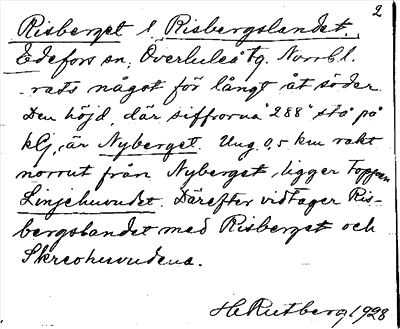 2
Risberget l. Risbergslandet.
Edefors sn, Överluleå tg. Norrb. l.
rats något för långt åt söder.
Den höjd, där siffrorna "288" stå på
kgl, är Nyberget. Ung. 0,5 km rakt
norrut från Nyberget, ligger Toppen
Linjehuvudet. Därefter vidtager Ris-
bergslandet med Risberget och
Skreohuvudena.
H Rutberg 1928